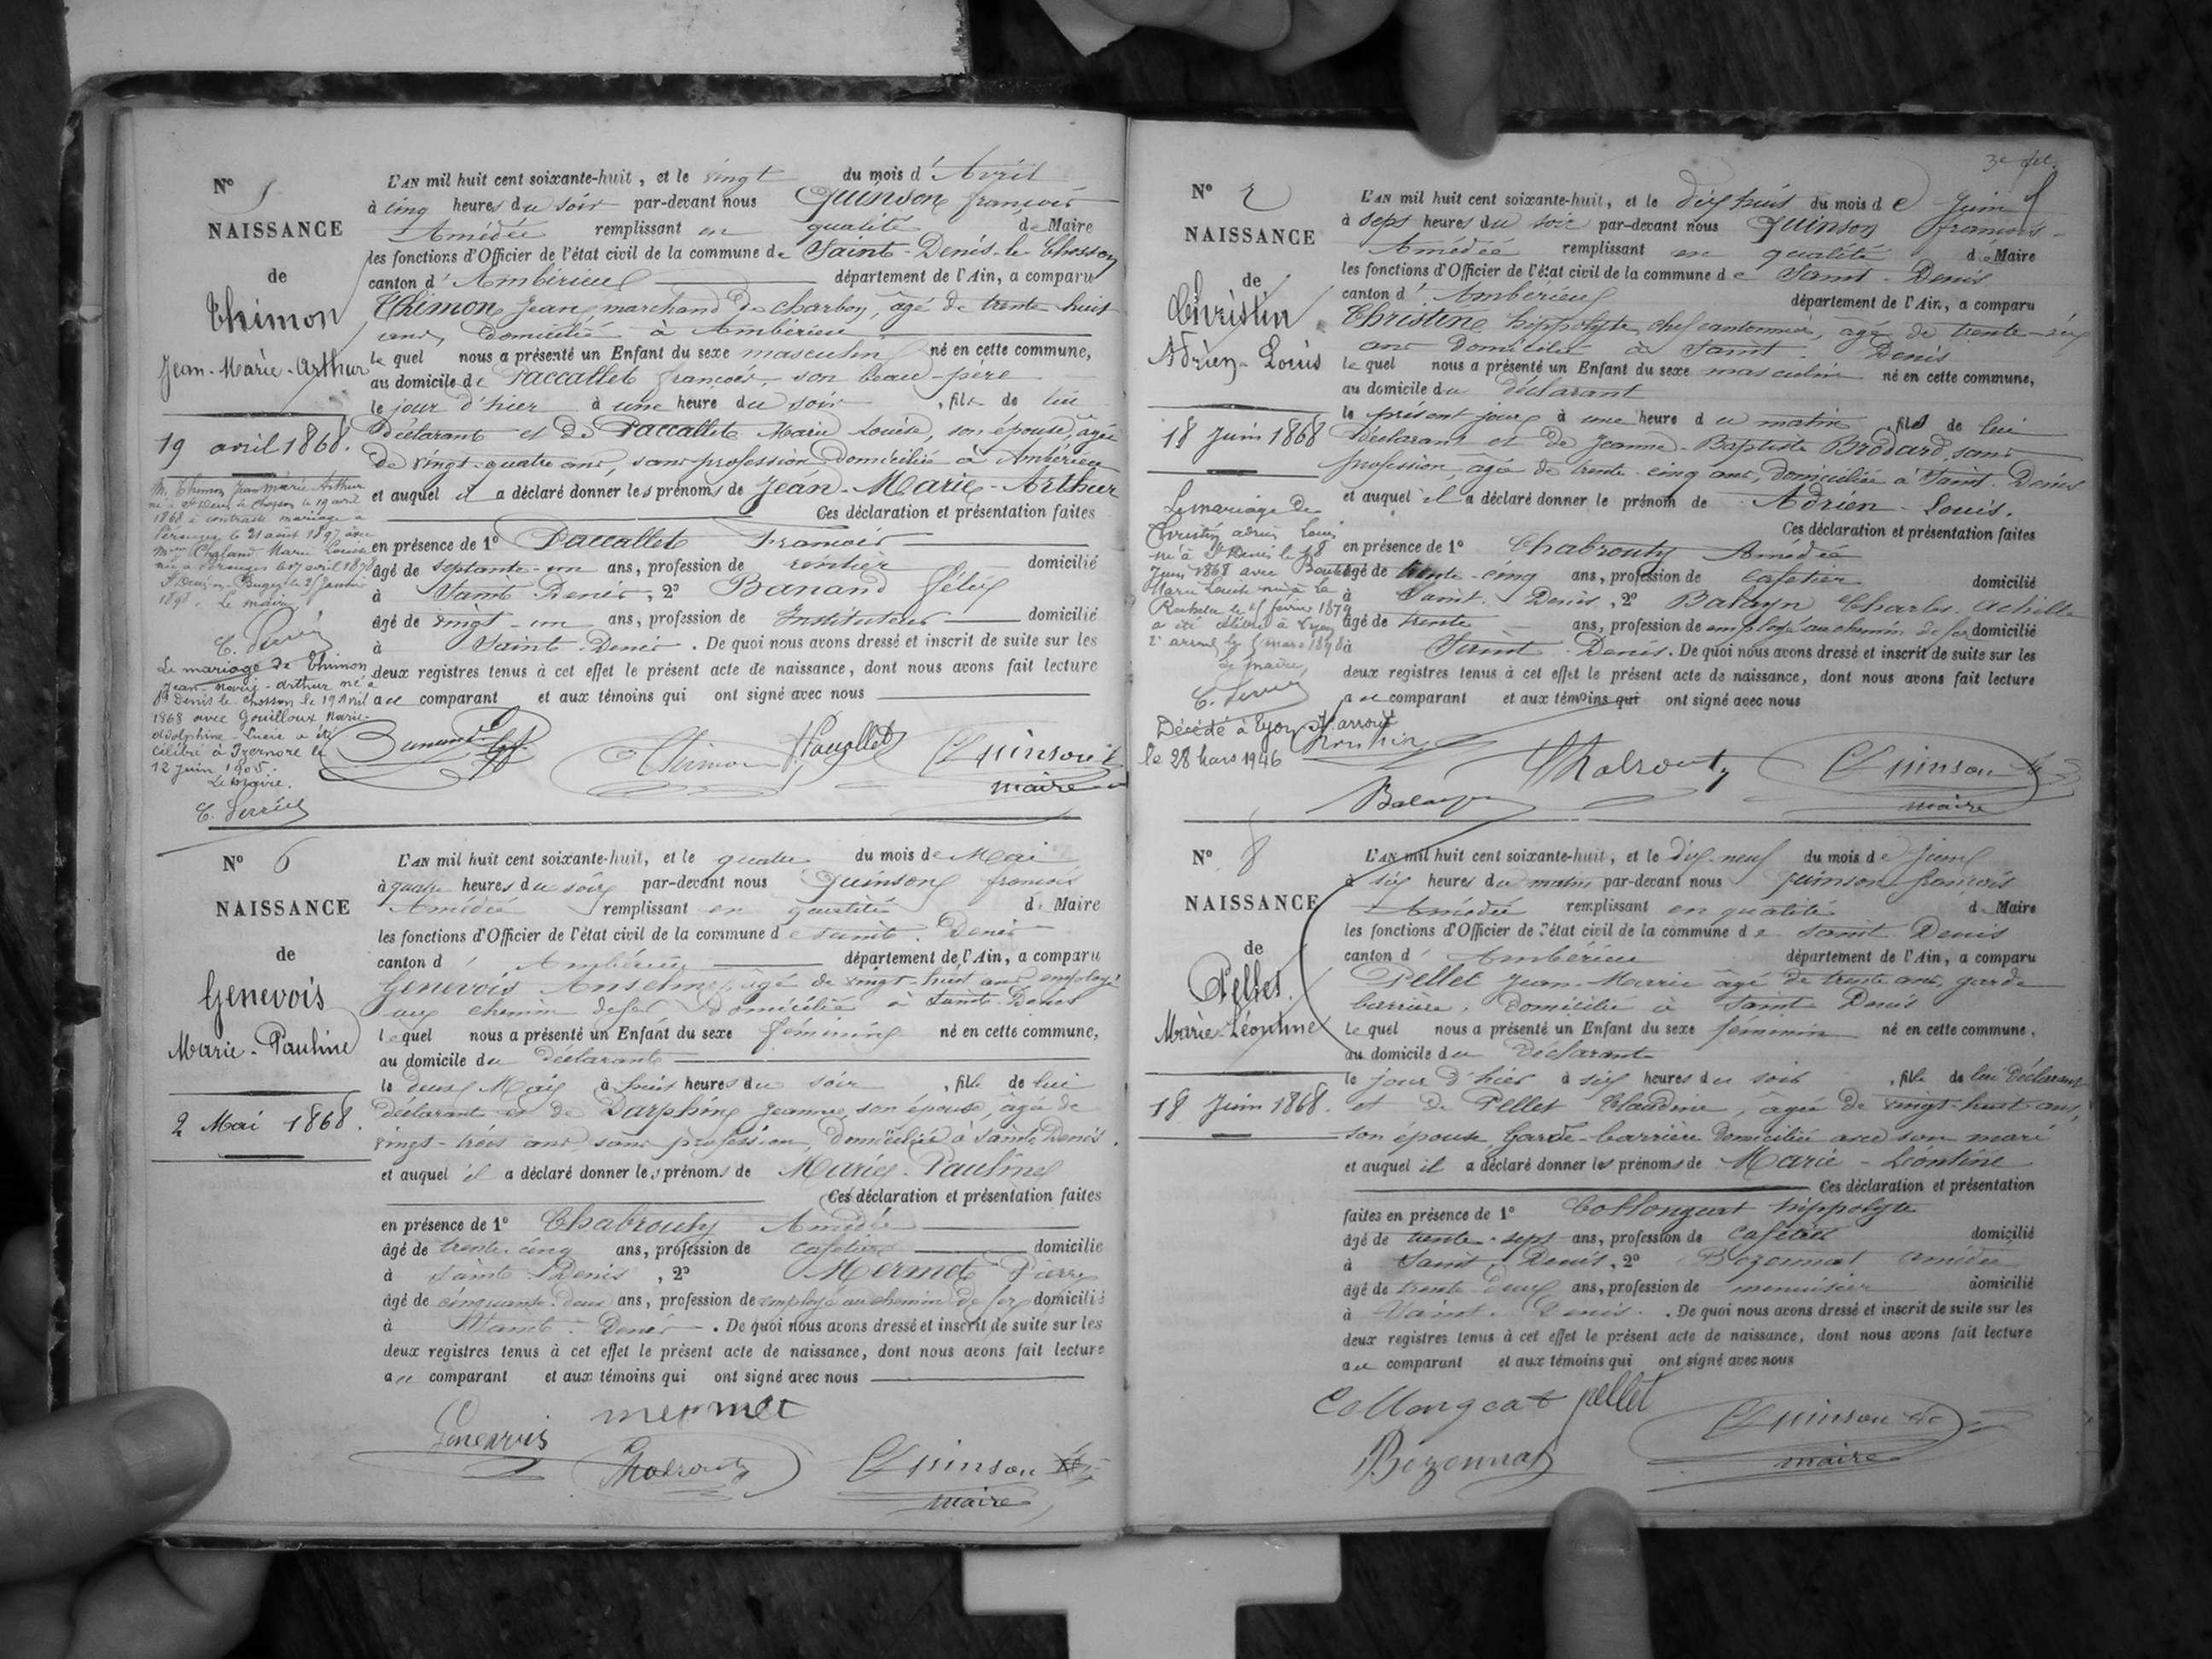 N° 5
NAISSANCE
de
Thimon
Jean-Marie-Arthur
19 avril 1868.
M. Thimon Jean Marie Arthur
né à St Denis le Chosson le 19 avril
1868 a contracté mariage à
Pérouges le 21 août 1897 avec
Mme Chaland Marie Louise
née à Pérouges le 17 avril 1870
St Denis en Bugey le 25 Janvier
1898. Le maire,
Le mariage de Thimon
Jean-Marie-Arthur né à
St Denis le Chosson le 19 Avril
1868 avec Gouilloux Marie-
Adolphine-Lucie a été
célébré à Izernore le
12 juin 1905.
Le Maire.
L'AN mil huit cent soixante-huit, et le vingt du mois d'Avril
à cinq heures du soir par-devant nous Quinson françois
Amédée remplissant en qualité de Maire
les fonctions d'Officier de l'état civil de la commune de Saint-Denis-le Chosson
canton d'Ambérieu département de l'Ain, a comparu
Thimon Jean, marchand de charbon, âgé de trente huit
ans, domicilié à Ambérieu
le quel nous a présenté un Enfant du sexe masculin né en cette commune,
au domicile de Paccallet françois, son beau-père
le jour d'hier à une heure du soir, fils de lui
Déclarant et de Paccallet Marie Louise, son épouse, âgée
de vingt-quatre ans, sans profession domiciliée à Ambérieu
et auquel il a déclaré donner les prénoms de Jean-Marie-Arthur
Ces déclaration et présentation faites
en présence de 1° Paccallet François
âgé de septante-un ans, profession de rentier domicilié
à Saint Denis, 2° Banand Félix
âgé de vingt-un ans, profession de Instituteur domicilié
à Saint-Denis. De quoi nous avons dressé et inscrit de suite sur les
deux registres tenus à cet effet le présent acte de naissance, dont nous avons fait lecture
au comparant et aux témoins qui ont signé avec nous
Thimon Paccallet Quinson
maire
N° 6
NAISSANCE
de
Genevois
Marie-Pauline
2 Mai 1868.
L'AN mil huit cent soixante-huit, et le quatre du mois de Mai
à quatre heures du soir par-devant nous Quinson françois
Amédée remplissant en qualité de Maire
les fonctions d'Officier de l'état civil de la commune de Saint-Denis
canton d'Ambérieu département de l'Ain, a comparu
Genevois Anselme, âgé de vingt-huit ans employé
aux chemin de fer domicilié à Saint-Denis
le quel nous a présenté un Enfant du sexe féminin né en cette commune,
au domicile du déclarant
le deux Mai à huit heures du soir, fille de lui
déclarant et de Darphin Jeanne, son épouse, âgée de
vingt-trois ans sans profession, domiciliée à Saint Denis.
et auquel il a déclaré donner les prénoms de Marie-Pauline
Ces déclaration et présentation faites
en présence de 1° Chabrouty Amédée
âgé de trente cinq ans, profession de cafetier domicilié
à Saint Denis, 2° Mermet Pierre
âgé de cinquante-deux ans, profession de employé au chemin de fer domicilié
à Saint-Denis. De quoi nous avons dressé et inscrit de suite sur les
deux registres tenus à cet effet le présent acte de naissance, dont nous avons fait lecture
au comparant et aux témoins qui ont signé avec nous
Genevois mermet
Chabrouty Quinson
maire
N° 7
NAISSANCE
de
Christin
Adrien-Louis
18 Juin 1868
Le mariage de
Christin Adrien Louis
né à St Denis le 18
Juin 1868 avec
Marie Louise née à la
Rochette le 25 février 1879
a été célébré à Lyon
2e arrond. le 5 mars 1898
Le maire,
Décédé à Lyon arrond
le 28 Mars 1946
L'AN mil huit cent soixante-huit, et le dix huit du mois de Juin
à sept heures du soir par-devant nous Quinson françois
Amédée remplissant en qualité de Maire
les fonctions d'Officier de l'état civil de la commune de Saint-Denis
canton d'Ambérieu département de l'Ain, a comparu
Christin hippolyte, chef cantonnier, âgé de trente-six
ans domicilié à Saint-Denis
le quel nous a présenté un Enfant du sexe masculin né en cette commune,
au domicile du déclarant
le présent jour à une heure du matin, fils de lui
déclarant et de Jeanne-Baptiste Brodard, sans
profession, âgée de trente cinq ans, domiciliée à Saint-Denis
et auquel il a déclaré donner le prénom de Adrien-Louis.
Ces déclaration et présentation faites
en présence de 1° Chabrouty Amédée
âgé de trente-cinq ans, profession de cafetier domicilié
à Saint-Denis, 2° Balayn Charles-Achille
âgé de trente ans, profession de employé au chemin de fer domicilié
à Saint-Denis. De quoi nous avons dressé et inscrit de suite sur les
deux registres tenus à cet effet le présent acte de naissance, dont nous avons fait lecture
au comparant et aux témoins qui ont signé avec nous
Chabrouty Quinson
Balayn maire
N° 8
NAISSANCE
de
Pellet
Marie-Léontine
18 Juin 1868.
L'AN mil huit cent soixante-huit, et le dix-neuf du mois de Juin
à six heures du matin par-devant nous Quinson françois
Amédée remplissant en qualité de Maire
les fonctions d'Officier de l'état civil de la commune de Saint-Denis
canton d'Ambérieu département de l'Ain, a comparu
Pellet Jean-Marie âgé de trente ans, garde
barrière, domicilié à Saint Denis
le quel nous a présenté un Enfant du sexe féminin né en cette commune,
au domicile du déclarant
le jour d'hier à six heures du soir, fille de lui Déclarant
et de Pellet Claudine, âgée de vingt-huit ans,
son épouse, Garde-barrière domiciliée avec son mari
et auquel il a déclaré donner les prénoms de Marie-Léontine
Ces déclaration et présentation
faites en présence de 1° Collongeat hippolyte
âgé de trente-sept ans, profession de cafetier domicilié
à Saint-Denis, 2° Bozonnat Amédée
âgé de trente deux ans, profession de menuisier domicilié
à Saint-Denis. De quoi nous avons dressé et inscrit de suite sur les
deux registres tenus à cet effet le présent acte de naissance, dont nous avons fait lecture
au comparant et aux témoins qui ont signé avec nous
Collongeat pellet
Bozonnat Quinson
maire